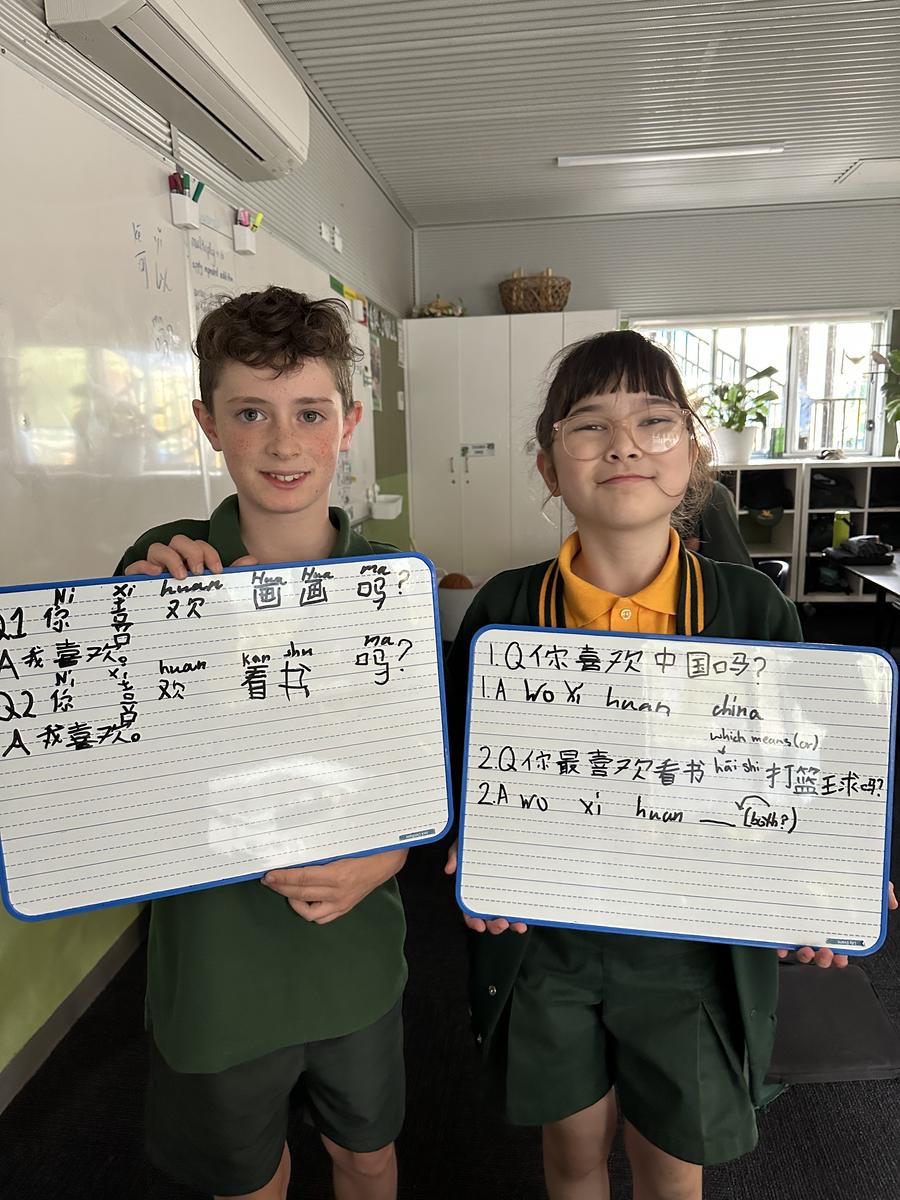 Ni xi huan Hua Hua ma
Q1 你 喜 欢 画 画 吗?
A 我喜欢。
Ni xi huan kan shu ma
Q2 你 喜 欢 看 书 吗?
A 我喜欢。
1.Q 你喜欢中国吗?
1.A Wo Xi huan china
which means (or)
2.Q 你最喜欢看书 hāi shi 打篮球吗?
2.A wo xi huan __ (both?)